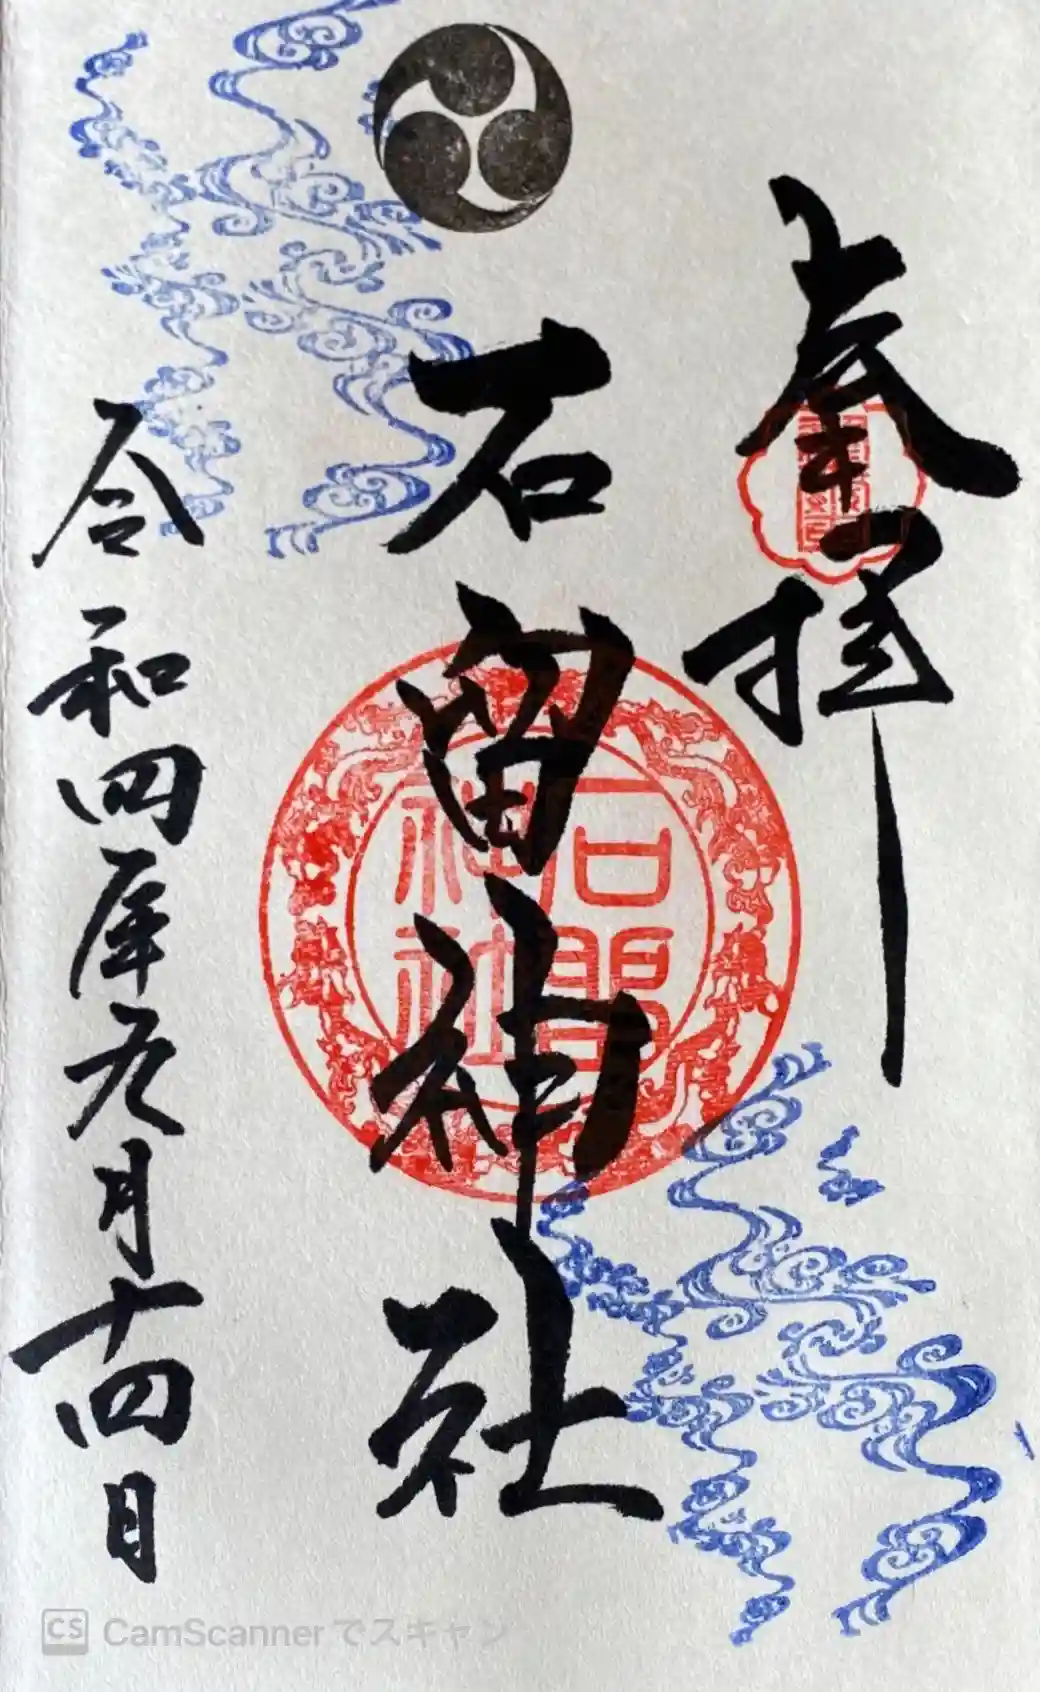 奉拝
石留神社
令和四年九月十四日
石留神社
CS CamScanner でスキャン